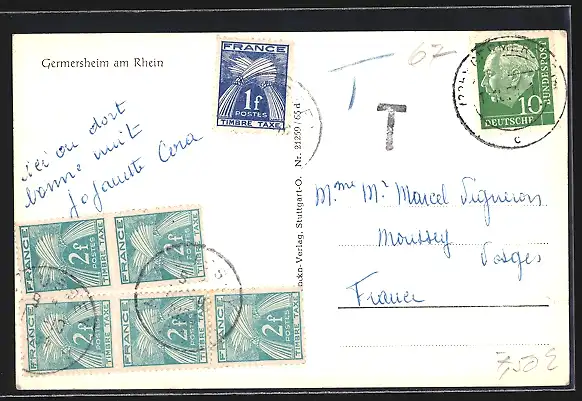 Germersheim am Rhein
FRANCE
1f
POSTES
TIMBRE TAXE
T
62
T
10
DEUTSCHE
BUNDESPOST
c
bonne nuit
Nr. 21259/65 d
-Verlag, Stuttgart-O.
Mme Mr Marcel Vigneron
Moussey
Vosges
France
FRANCE
2f
POSTES
TIMBRE TAXE
FRANCE
2f
POSTES
TIMBRE TAXE
FRANCE
2f
POSTES
TIMBRE TAXE
FRANCE
2f
POSTES
TIMBRE TAXE
FRANCE
2f
POSTES
TIMBRE TAXE
7,50 €